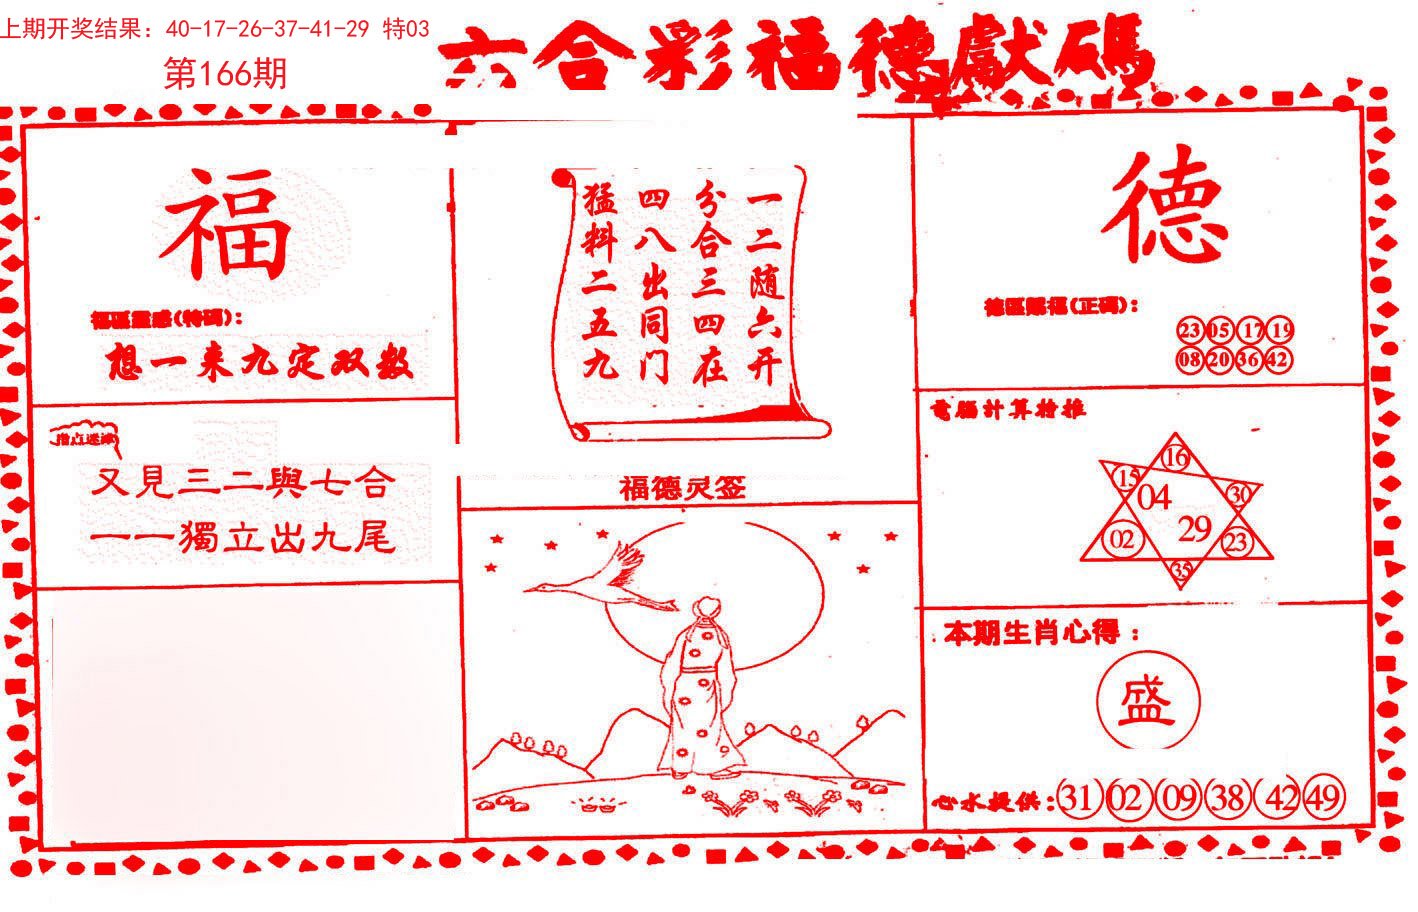 上期开奖结果：40-17-26-37-41-29 特03
第166期
六合彩福德獻碼
福
福區靈感(特碼)：
想一来九定双数
指点迷津
又見三二與七合
一一獨立出九尾
一二随六开
分合三四在
四八出同门
猛料二五九
福德灵签
德
德區賜福(正碼)：
23 05 17 19
08 20 36 42
電腦計算特推
16
15
04
30
29
02
23
35
本期生肖心得：
盛
心水提供：31 02 09 38 42 49